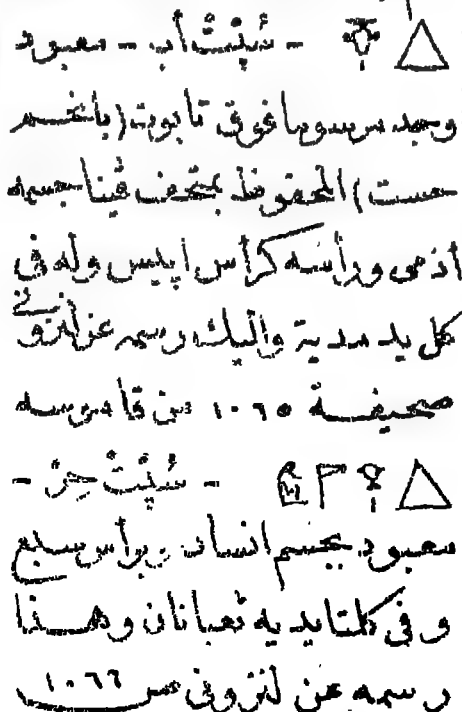 - سُپِتْ أَب - معبود
وجد مرسوما فوق تابوت (بالقسم
ست) المحفوظ بمتحف ڤينا جسمه
آدمى ورأسه كرأس اپيس وله فى
كل يد مدية واليك رسمه عن لنزونى
صحيفة ١٠٦٥ من قاموسه
- سُپِتْ حِرْ -
معبود بجسم انسان وبرأس سبع
وفى كلتا يديه ثعبانان وهذا
رسمه عن لنزونى ص ١٠٦٦